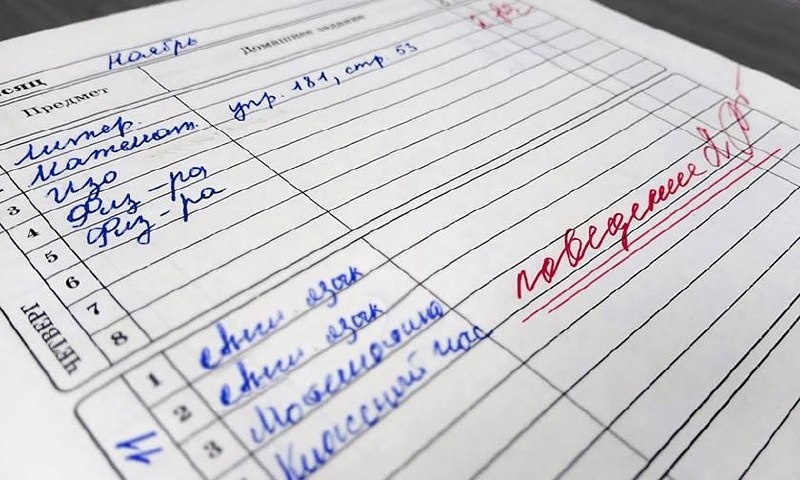 месяц Ноябрь
Предмет Домашнее задание
литер. упр. 181, стр 53
Математ.
3 ИЗО
4 Физ-ра
5 Физ-ра
6
7
8
ЧЕТВЕРГ
поведение 2
1 Англ. язык
2 Англ. язык
3 Математика
Классный час
11